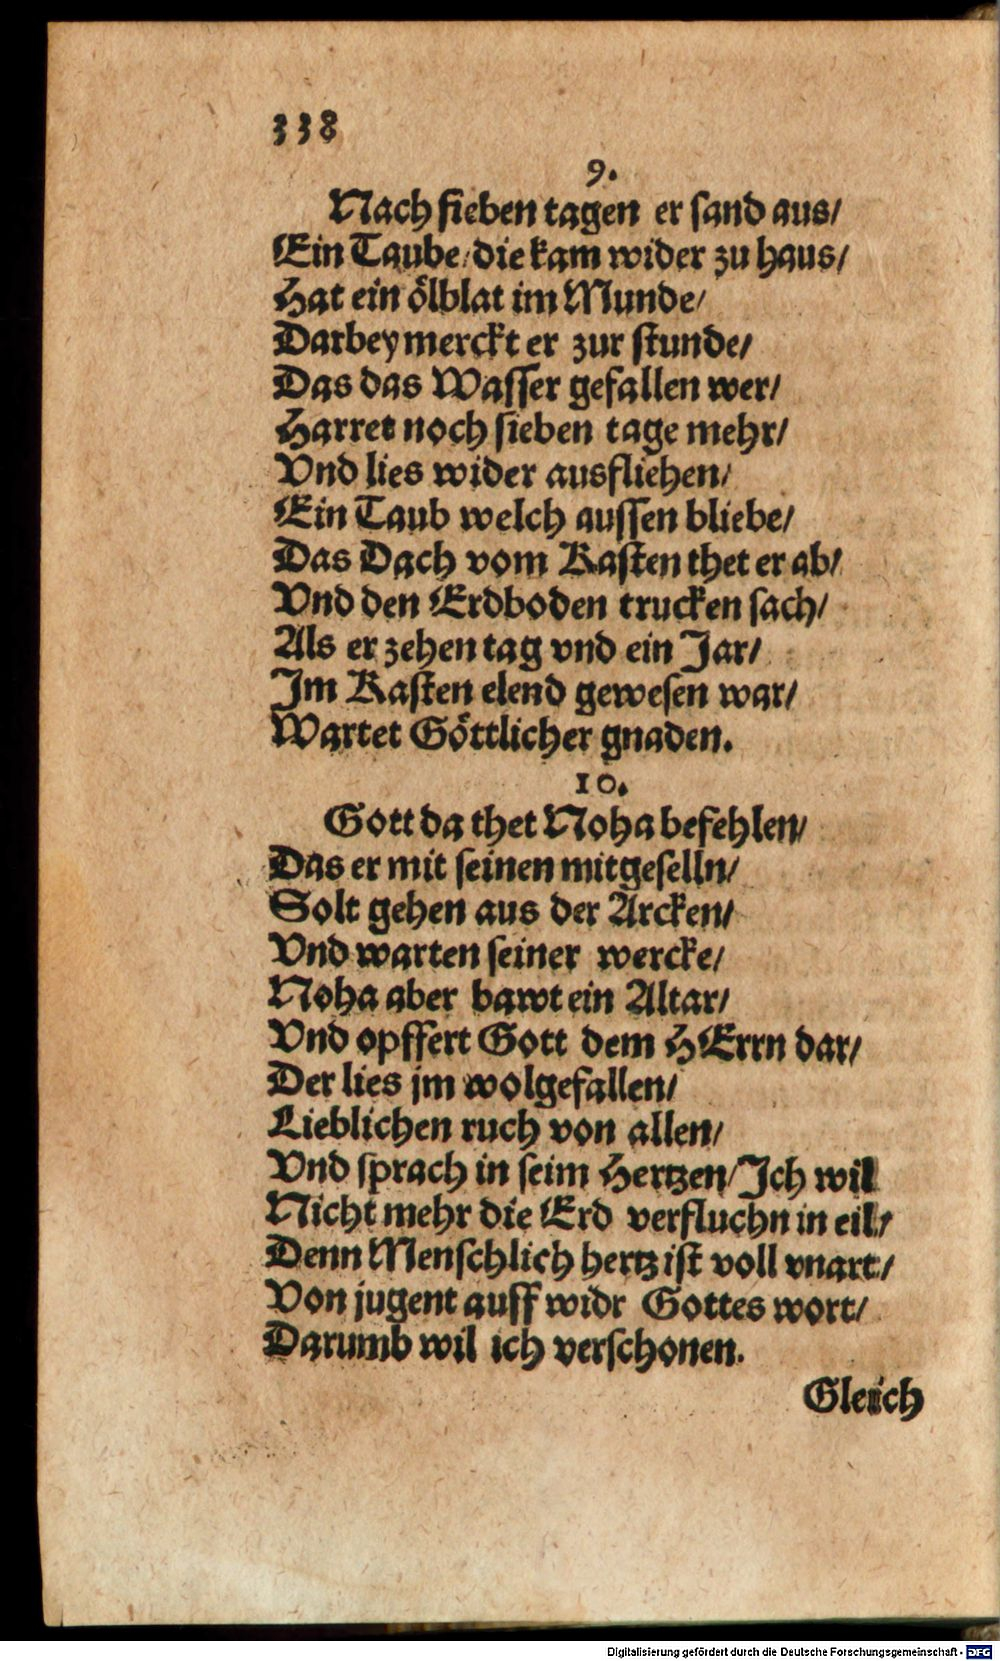 338
9.
Nach sieben tagen er sand aus/
Ein Taube/die kam wider zu haus/
Hat ein ölblat im Munde/
Darbey merckt er zur stunde/
Das das Wasser gefallen wer/
Harret noch sieben tage mehr/
Vnd lies wider ausfliehen/
Ein Taub welch aussen bliebe/
Das Dach vom Kasten thet er ab/
Vnd den Erdboden trucken sach/
Als er zehen tag vnd ein Jar/
Im Kasten elend gewesen war/
Wartet Göttlicher gnaden.
10.
Gott da thet Noha befehlen/
Das er mit seinen mitgeselln/
Solt gehen aus der Arcken/
Vnd warten seiner wercke/
Noha aber bawt ein Altar/
Vnd opffert Gott dem HErrn dar/
Der lies jm wolgefallen/
Lieblichen ruch von allen/
Vnd sprach in seim Hertzen/Ich wil
Nicht mehr die Erd verfluchn in eil/
Denn Menschlich hertz ist voll vnart/
Von jugent auff widr Gottes wort/
Darumb wil ich verschonen.
Gleich
Digitalisierung gefördert durch die Deutsche Forschungsgemeinschaft - DFG